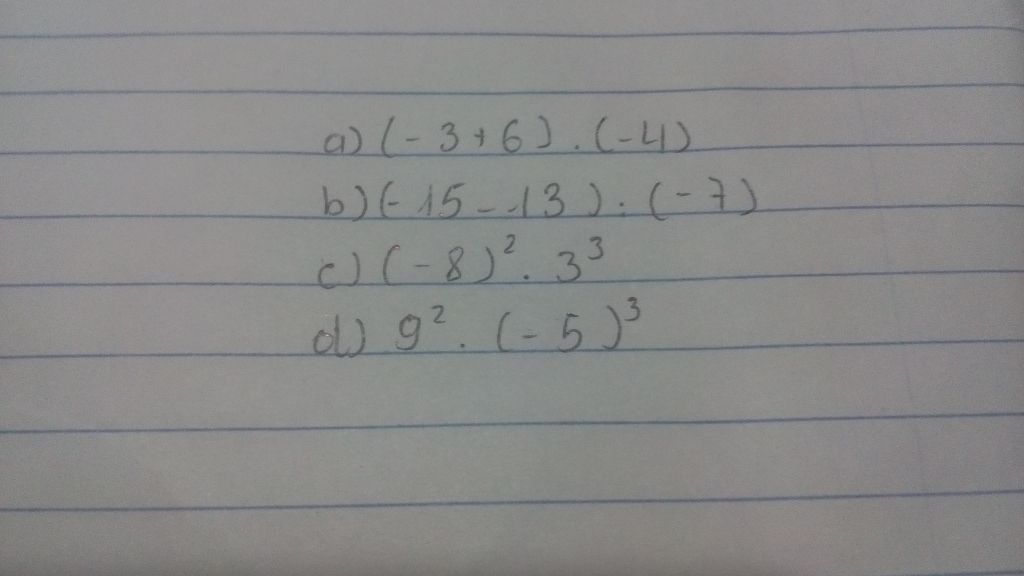 a) (-3+6).(-4)
b) (-15-13):(-7)
c) (-8)².3³
d) 9².(-5)³